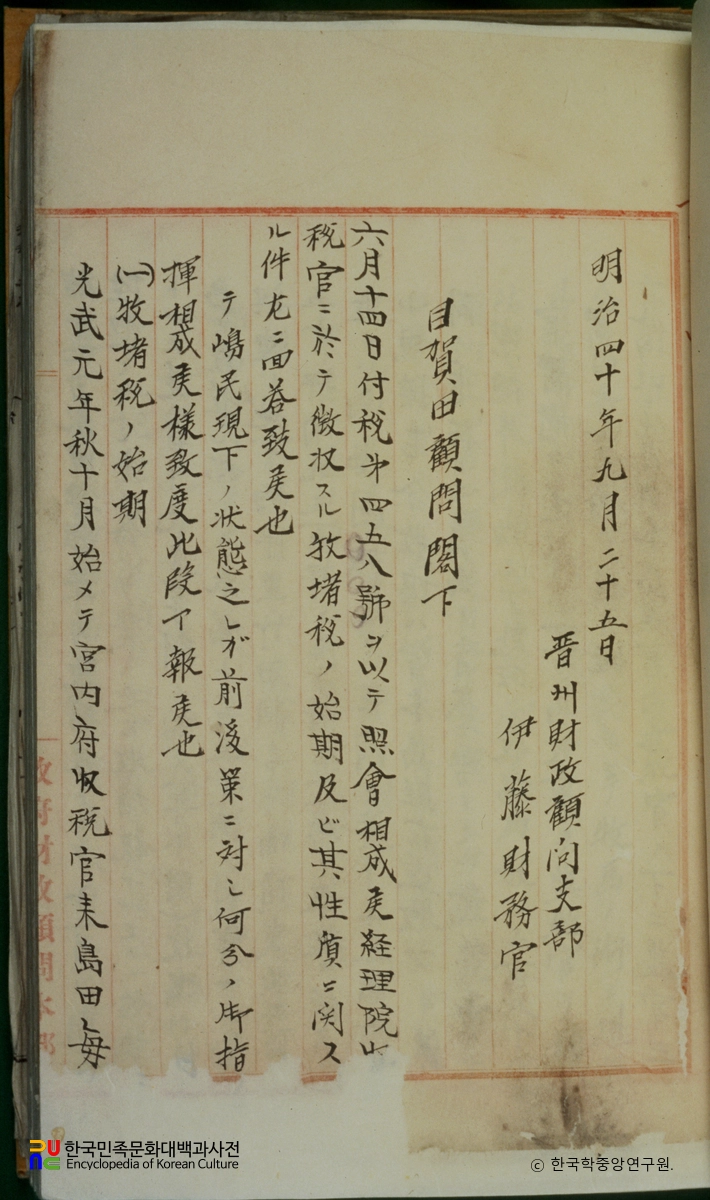 明治四十年九月二十五日
晋州財政顧问支部
伊藤財務官
目賀田顧問閣下
六月十四日付税第四五八號ヲ以テ照會相成候経理院
税官ニ於テ徴収スル牧堵税ノ始期及ビ其性質ニ関ス
ル件左ニ回答致候也
テ嶋民現下ノ状態之レガ前後策ニ対シ何分ノ御指
揮相成候様致度此段 報候也
(一)牧堵税ノ始期
光武元年秋十月始メテ宮内府収税官来島田每
政府財政顧問本部
한국민족문화대백과사전
Encyclopedia of Korean Culture
© 한국학중앙연구원.